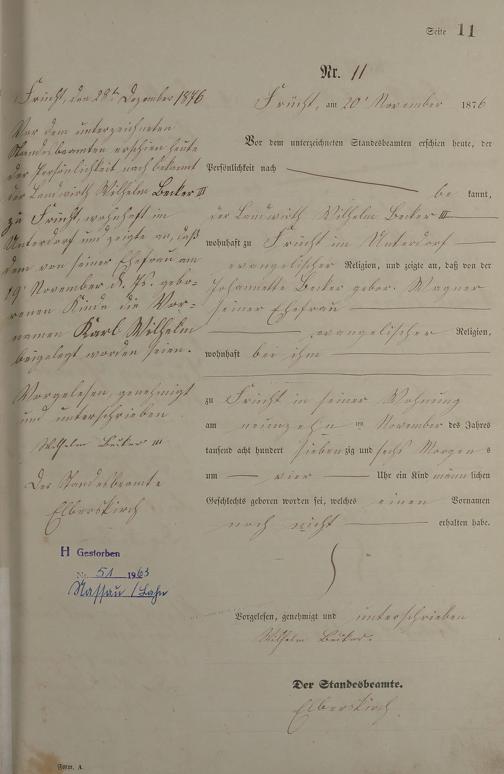 Seite 11
Nr. 11
Frücht, den 28ten Dezember 1876
Vor dem unterzeichneten
Standesbeamten erschien heute
der Persönlichkeit nach bekannt
der Landwirth Wilhelm Becker III
zu Frücht, wohnhaft im
Unterdorf und zeigte an, daß
dem von seiner Ehefrau am
19. November d. Js. gebo-
renen Kinde die Vor-
namen Karl Wilhelm
beigelegt worden seien.
Vorgelesen, genehmigt
und unterschrieben
Wilhelm Becker III
Der Standesbeamte
Elberskirch
H Gestorben
Nr. 51 1963
Nassau / Lahn
Frücht, am 20t November 1876
Vor dem unterzeichneten Standesbeamten erschien heute, der
Persönlichkeit nach
be kannt,
der Landwirth Wilhelm Becker III
wohnhaft zu Frücht im Unterdorf
evangelischer Religion, und zeigte an, daß von der
Johannette Becker gebor. Wagner
seiner Ehefrau
evangelischer Religion,
wohnhaft bei ihm
zu Frücht in seiner Wohnung
am neunzehn ten November des Jahres
tausend acht hundert sieben zig und sechs Morgens
um vier Uhr ein Kind männ lichen
Geschlechts geboren worden sei, welches einen Vornamen
noch nicht erhalten habe.
Vorgelesen, genehmigt und unterschrieben
Wilhelm Becker.
Der Standesbeamte.
Elberskirch
Form. A.